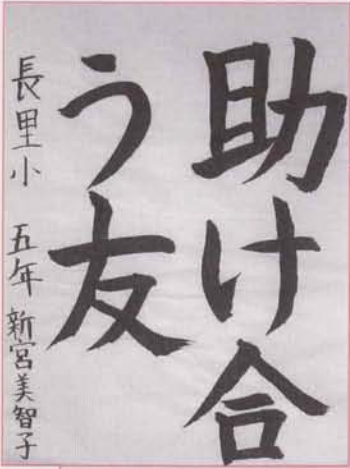 助け合
う友
長里小 五年 新宮美智子